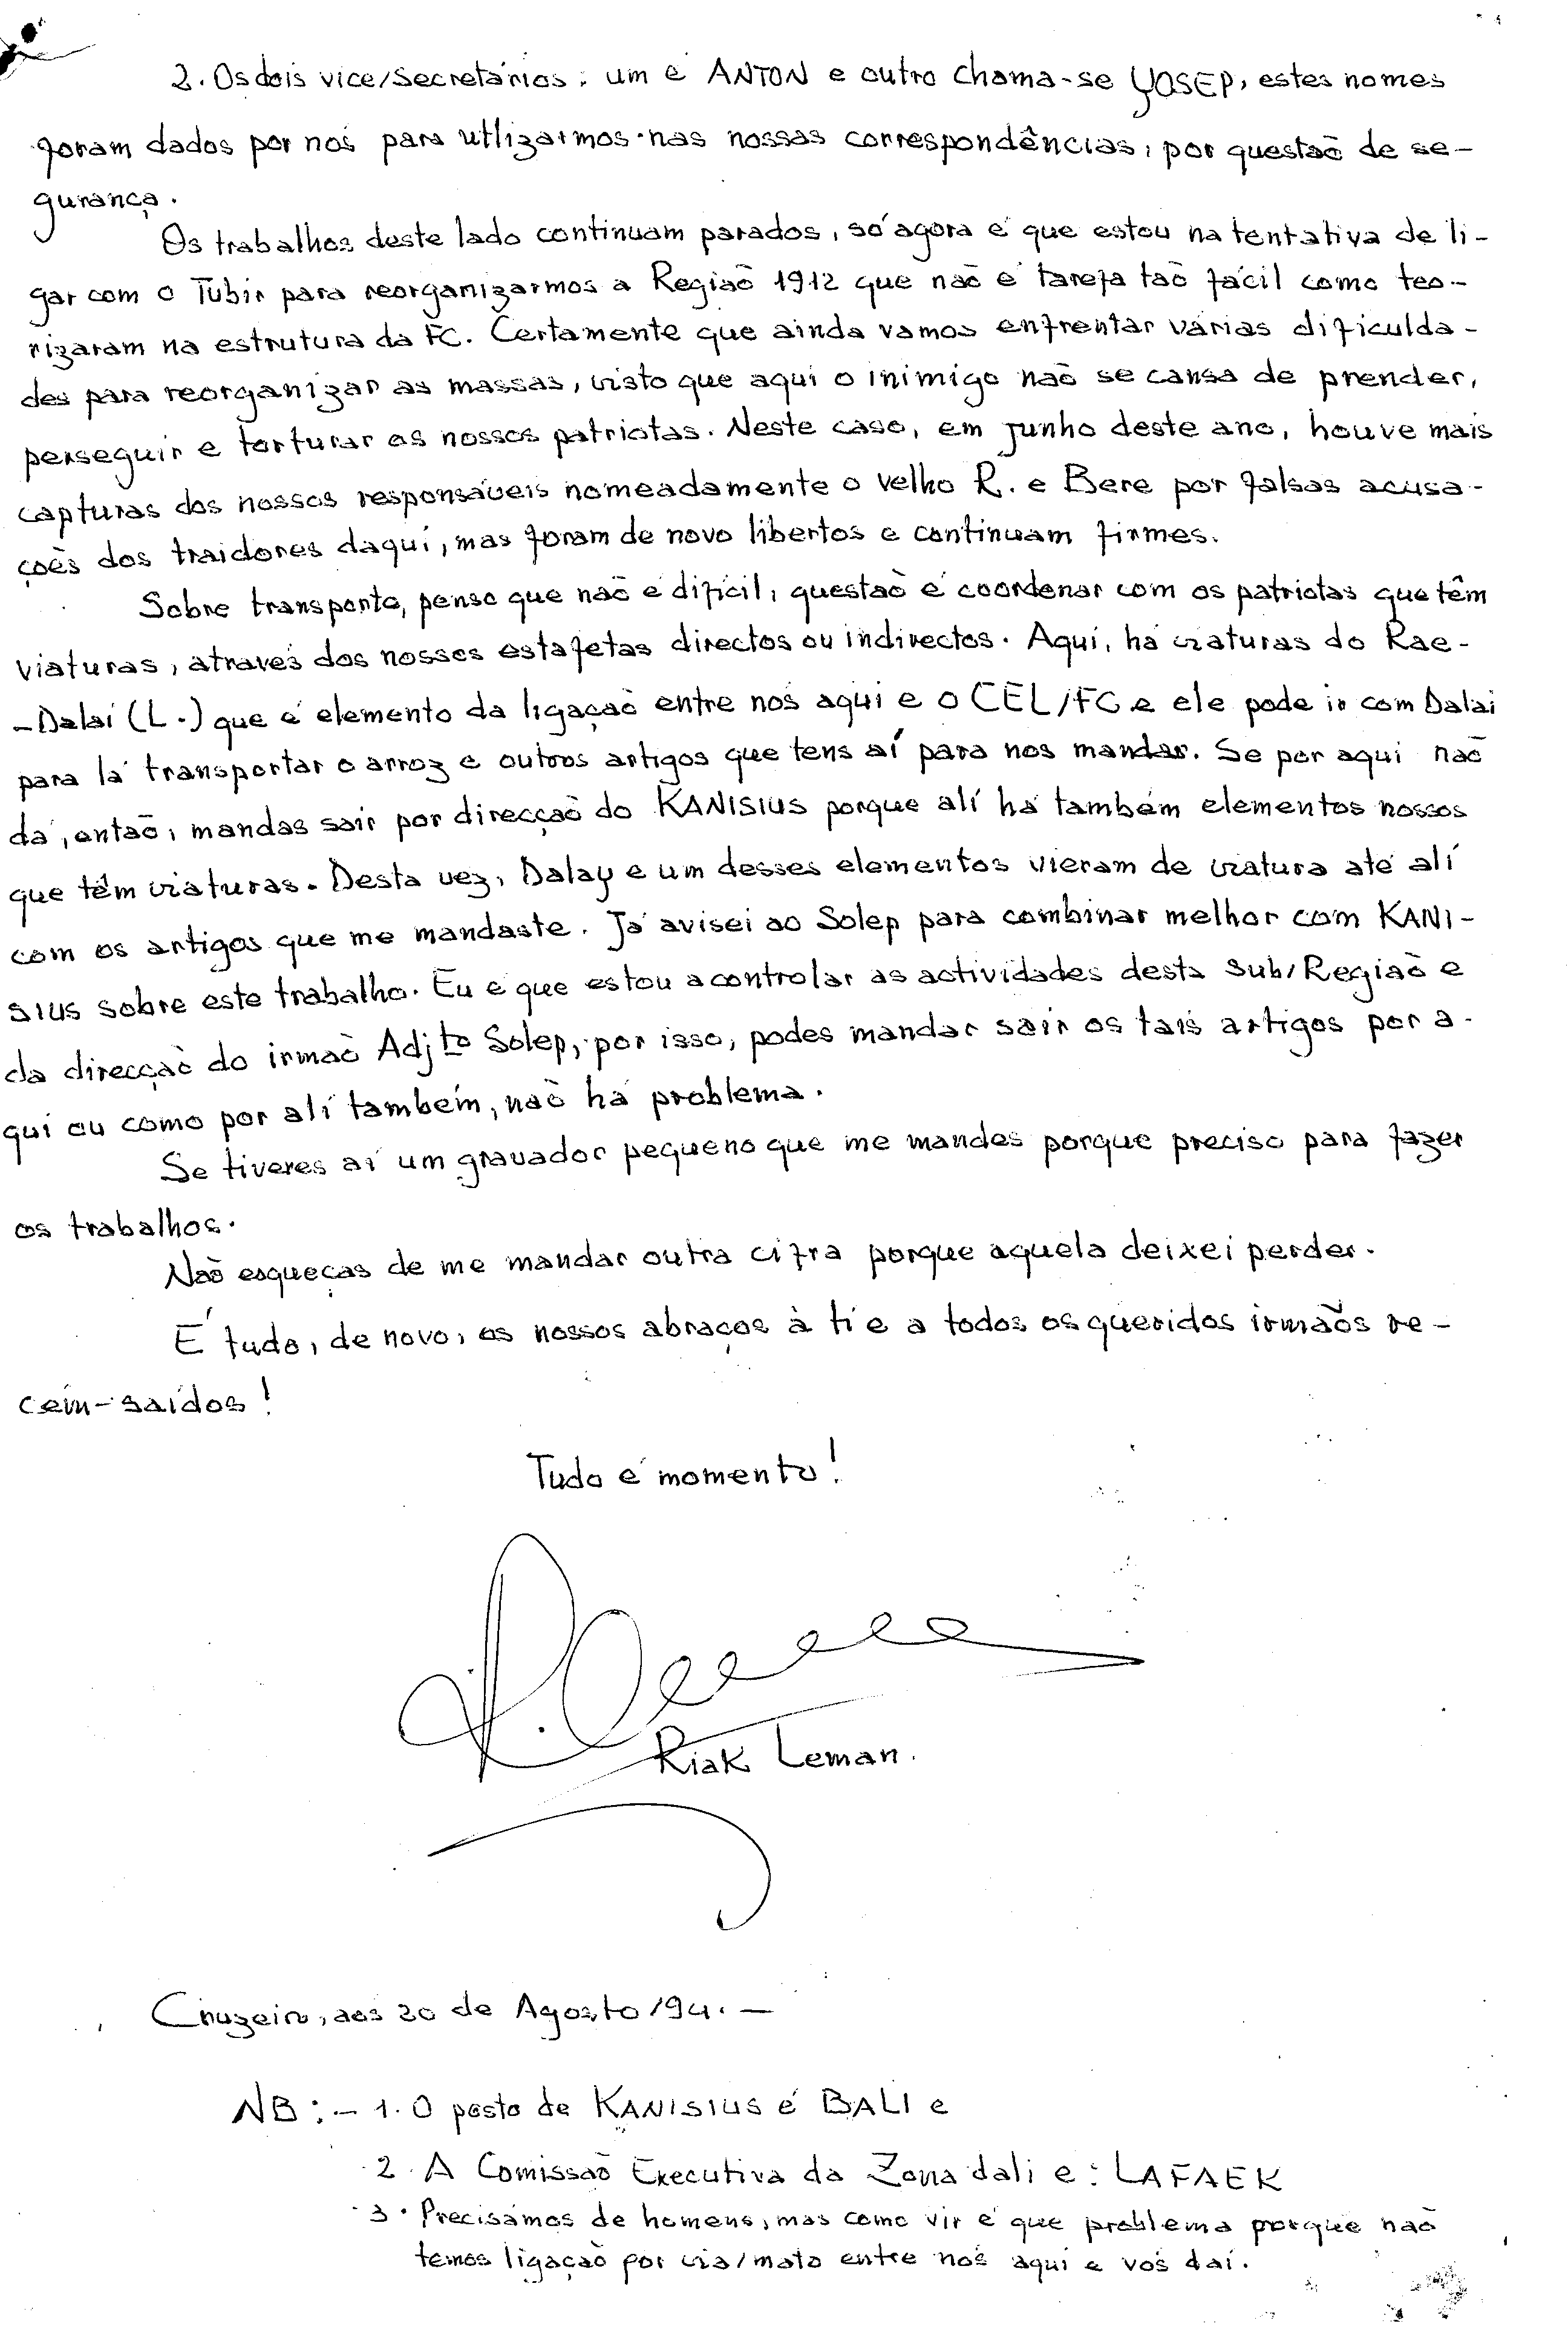 2. Os dois vice/Secretários: um é ANTON e outro chama-se YOSEP, estes nomes
foram dados por nós para utlizarmos nas nossas correspondências, por questaõ de se-
gurança.
Os trabalhos deste lado continuam parados, só agora é que estou na tentativa de li-
gar com o Tubir para reorganizarmos a Regiaõ 1912 que naõ é tarefa taõ fácil como teo-
rizaram na estrutura da FC. Certamente que ainda vamos enfrentar várias dificulda-
des para reorganizar as massas, visto que aqui o inimigo naõ se cansa de prender,
perseguir e torturar os nossos patriotas. Neste caso, em junho deste ano, houve mais
capturas dos nossos responsáveis nomeadamente o velho R. e Bere por falsas acusa-
çoẽs dos traidores daquí, mas foram de novo libertos e continuam firmes.
Sobre transporte, penso que naõ é difícil, questaõ é coordenar com os patriotas que têm
viaturas, através dos nossos estafetas directos ou indirectos. Aquí, há viaturas do Rae-
-Dalaí (L.) que é elemento da ligaçaõ entre nós aqui e o CEL/FC e ele pode ir com Dalai
para lá transportar o arroz e outros artigos que tens aí para nos mandar. Se por aqui naõ
dá, entaõ, mandas sair por direcçaõ do KANISIUS porque alí há também elementos nossos
que têm viaturas. Desta vez, Dalay e um desses elementos vieram de viatura até alí
com os artigos que me mandaste. Já avisei ao Solep para combinar melhor com KANI-
SIUS sobre este trabalho. Eu é que estou a controlar as actividades desta Sub/Regiaõ e
da direcçaõ do irmaõ Adjto Solep, por isso, podes mandar sair os tais artigos por a-
qui ou como por alí também, naõ há problema.
Se tiveres aí um gravador pequeno que me mandes porque preciso para fazer
os trabalhos.
Naõ esqueças de me mandar outra cifra porque aquela deixei perder.
É tudo, de novo, os nossos abraços à ti e a todos os queridos irmãos re-
cém-saídos!
Tudo é momento!
Riak Leman.
Cruzeiro, aos 20 de Agosto/94.—
NB:- 1. O posto de KANISIUS é BALI e
2. A Comissaõ Executiva da Zona dali é: LAFAEK
3. Precisámos de homens, mas como vir é que problema porque naõ
temos ligaçaõ por via/mato entre nós aqui e vós daí.